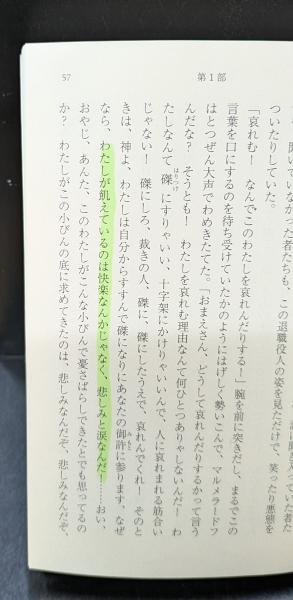 57
第1部
も、聞いていなかった者たちも、この退職役人の姿を見ただけで、笑ったり悪態を
ついたりしていた。
「哀れむ！　なんでこのわたしを哀れんだりする！」腕を前に突きだし、まるでこの
言葉を口にするのを待ち受けていたかのようにはげしく勢いこんで、マルメラードフ
はとつぜん大声でわめきたてた。「おまえさん、どうして哀れんだりするかって言う
んだな？　そうとも！　わたしを哀れむ理由なんて何ひとつありゃしないんだ！　わ
たしなんて磔にすりゃいい、十字架にかけりゃいいんで、人に哀れまれる筋合い
はりつけ
じゃない！　磔にしろ、裁きの人、磔に、磔にしたうえで、哀れんでくれ！　そのと
きは、神よ、わたしは自分からすすんで磔になりにあなたの御許に参ります、なぜ
みもと
なら、わたしが飢えているのは快楽なんかじゃなく、悲しみと涙なんだ！……おい、
おやじ、あんた、このわたしがこんな小びんで憂さばらしできたとでも思ってるの
か？　わたしがこの小びんの底に求めてきたのは、悲しみなんだぞ、悲しみなんだぞ、